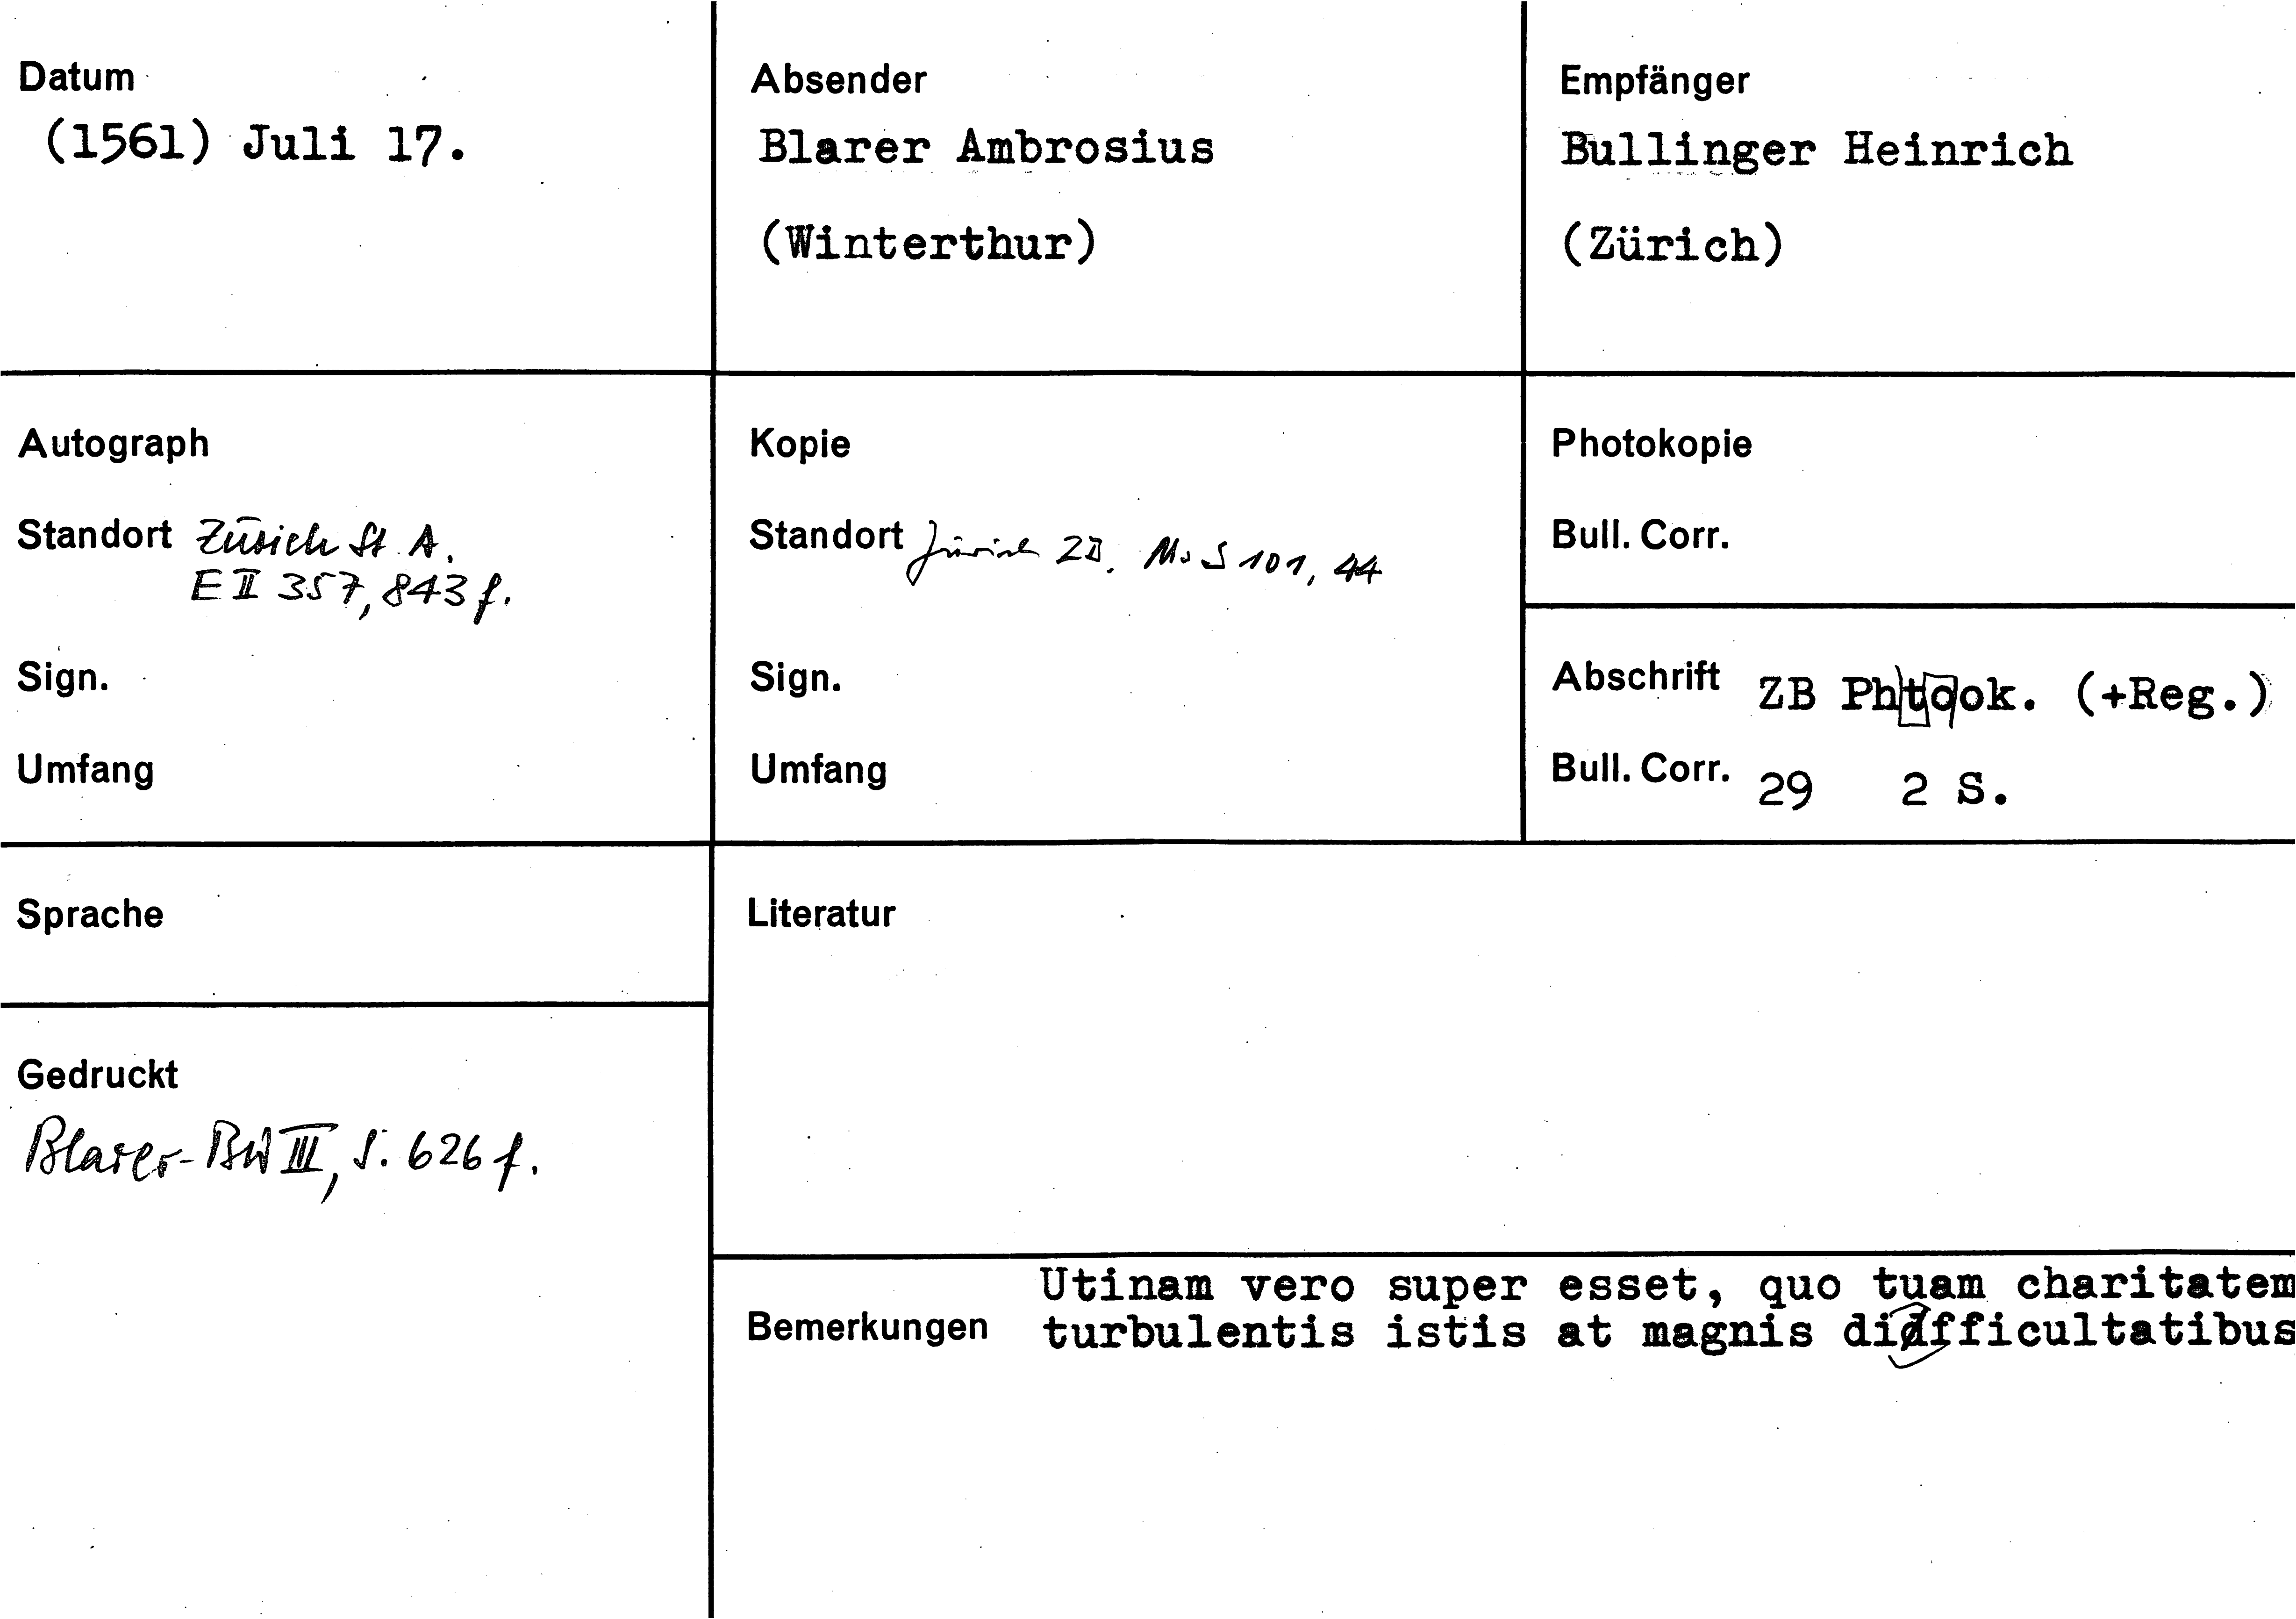 Datum
(1561) Juli 17.
Absender
Blarer Ambrosius
(Winterthur)
Empfänger
Bullinger Heinrich
(Zürich)
Autograph
Standort Zürich St A.
E II 357, 843 f.
Sign.
Umfang
Kopie
Standort Zürich ZB. Ms S 101, 44
Sign.
Umfang
Photokopie
Bull. Corr.
Abschrift ZB Phtook. (+Reg.)
Bull. Corr. 29 2 S.
Sprache
Literatur
Gedruckt
Blarer-BW III, S. 626 f.
Bemerkungen
Utinam vero super esset, quo tuam charitatem
turbulentis istis at magnis difficultatibus